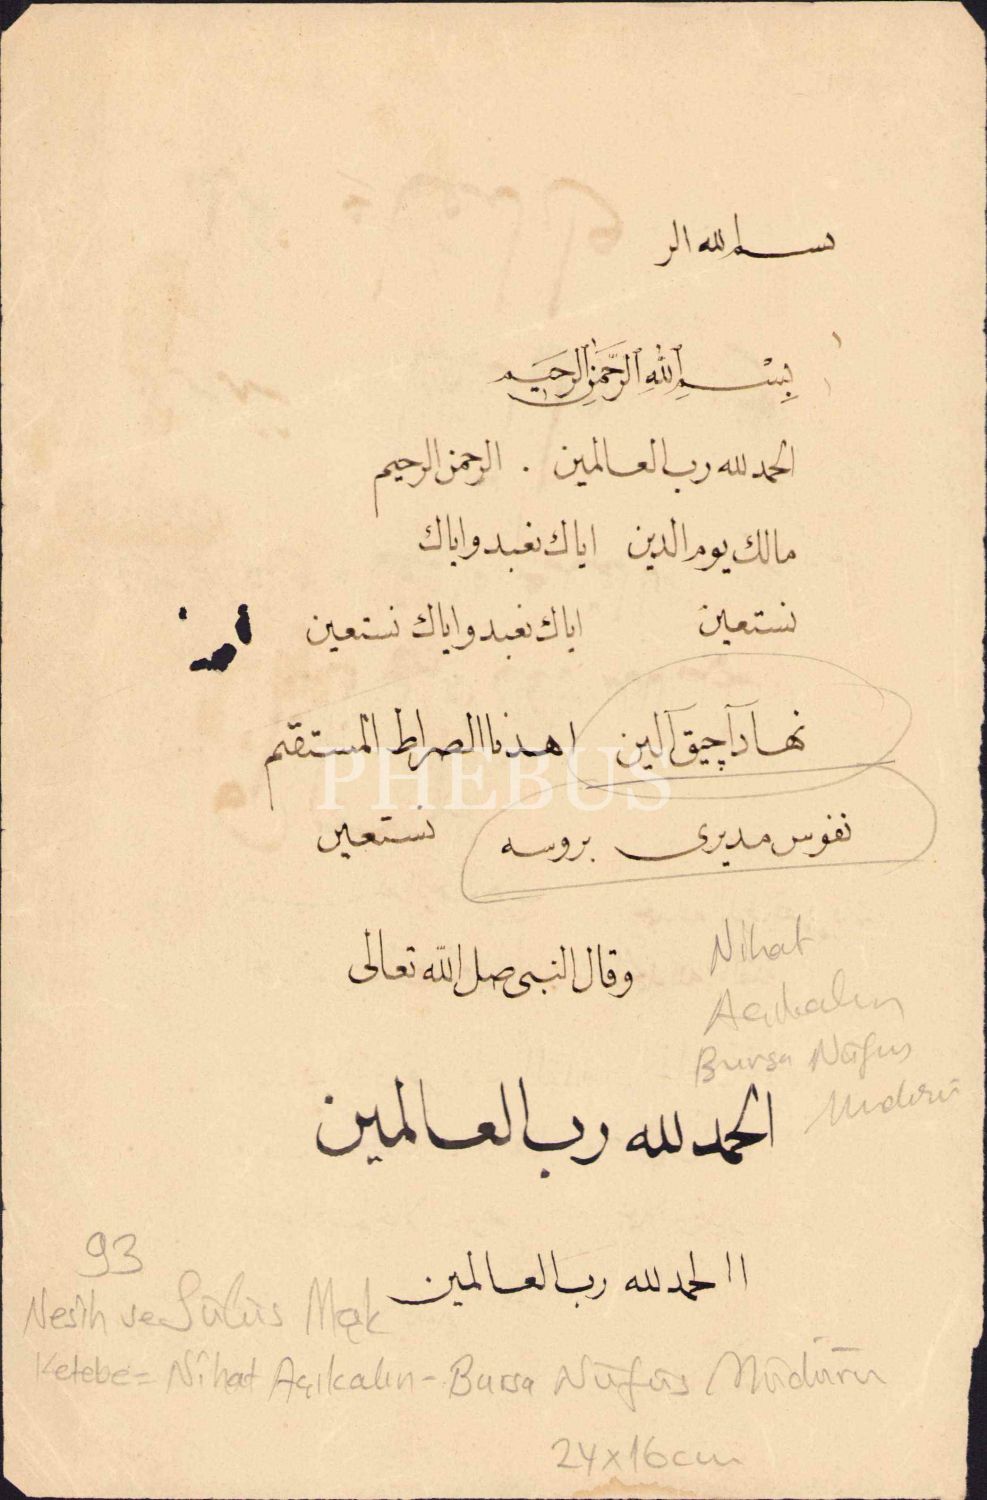 بسم لله الر
بِسْمِ اللهِ الرَّحْمٰنِ الرَّحِيمِ
الحمد لله رب العالمين . الرحمن الرحيم
مالك يوم الدين اياك نعبد واياك
نستعين اياك نعبد واياك نستعين
نهاد آچيق آلين اهدنا الصراط المستقيم
PHEBUS
نفوس مديرى بروسه نستعين
وقال النبى صل الله تعالى
Nihat
Açıkalın
Bursa Nüfus
Müdürü
الحمد لله رب العالمين
93
اا لحمد لله رب العالمين
Nesih ve Sülüs Meşk
Ketebe = Nihat Açıkalın - Bursa Nüfus Müdürü
24x16cm